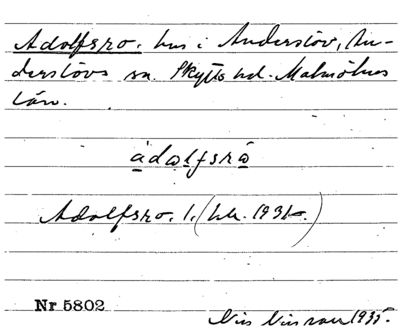 Adolfsro. hus i Anderslöv, An-
derslövs sn. Skytts hd. Malmöhus
län.
ádolfsrω̄
Adolfsro. 1. (hk. 1931.)
Nr 5802
Nils Nilsson 1935.